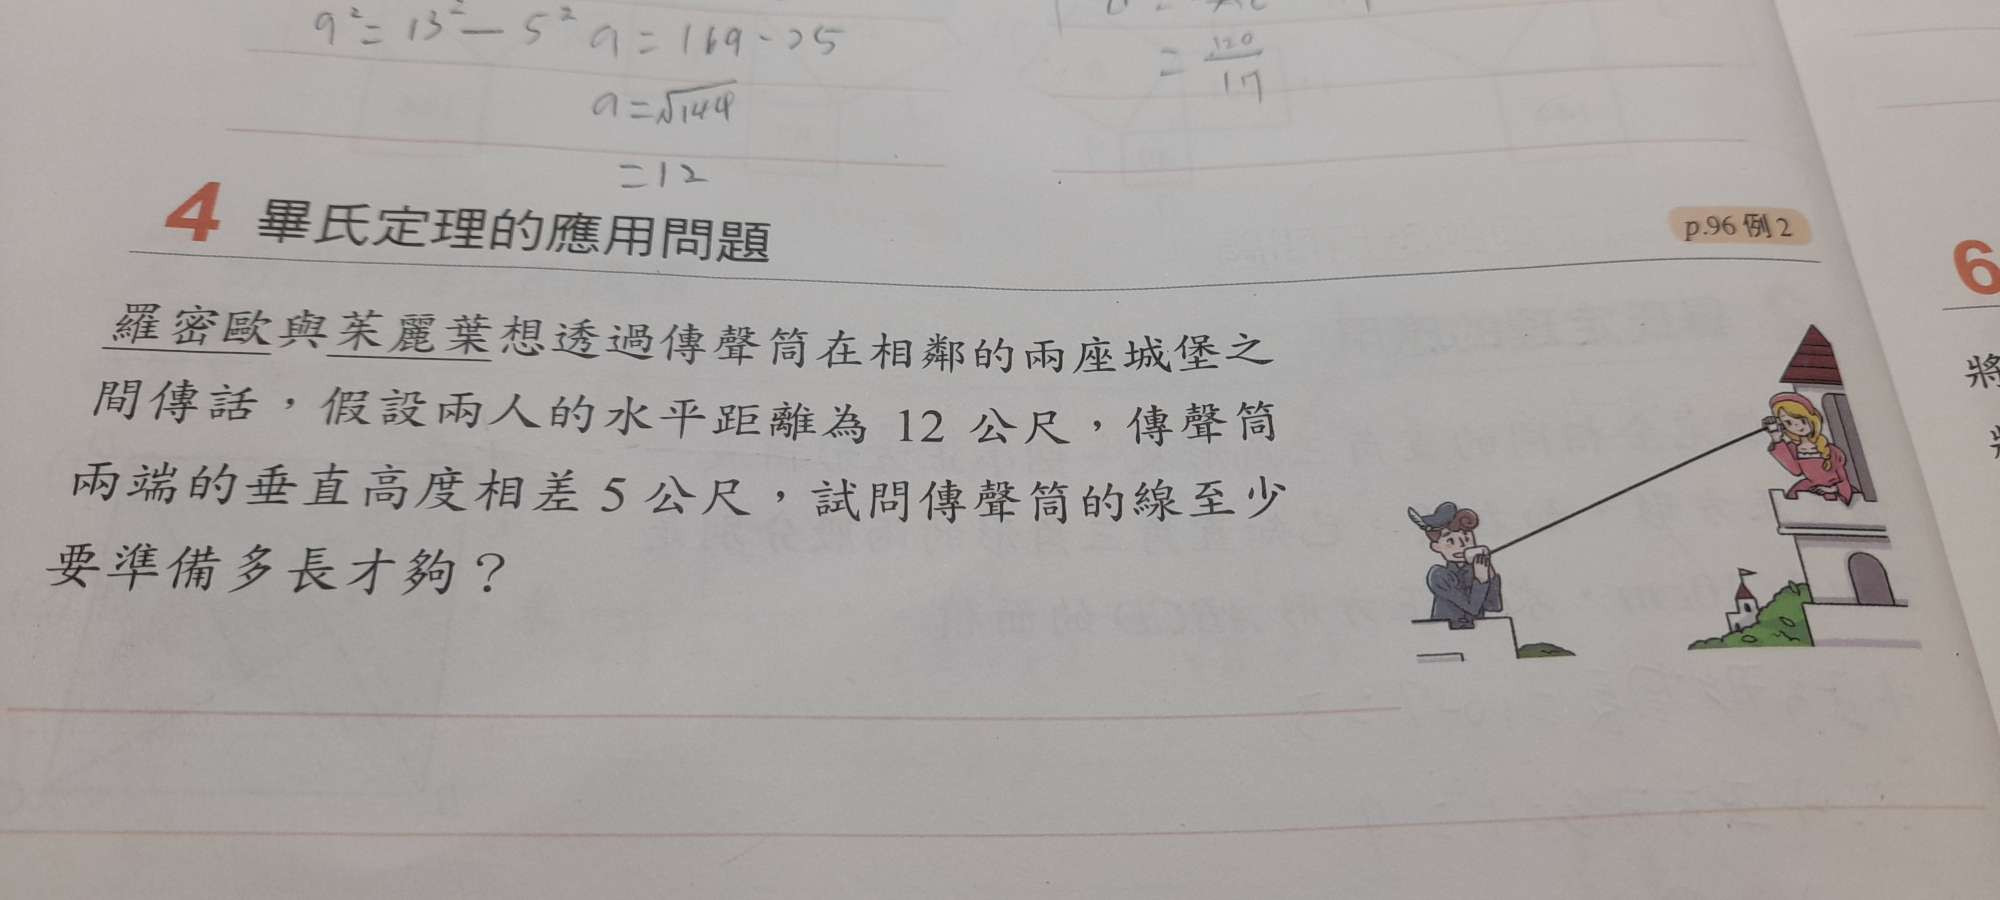 a² = 13² - 5² a = 169 - 25
a = √144
= 12
= 120/17
4 畢氏定理的應用問題
p.96 例 2
羅密歐與茱麗葉想透過傳聲筒在相鄰的兩座城堡之
間傳話，假設兩人的水平距離為 12 公尺，傳聲筒
兩端的垂直高度相差 5 公尺，試問傳聲筒的線至少
要準備多長才夠？
6
將